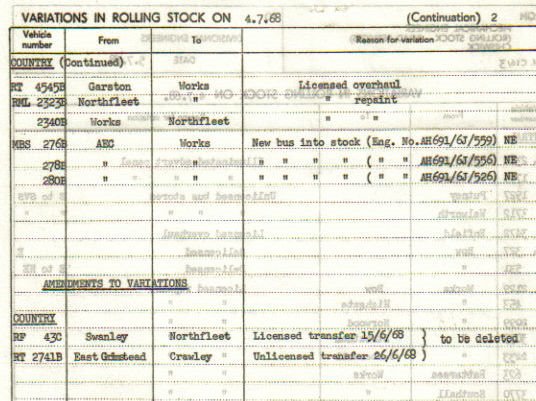 VARIATIONS IN ROLLING STOCK ON 4.7.68 (Continuation) 2
Vehicle number From To Reason for variation
COUNTRY (Continued)
RT 4545B Garston Works Licensed overhaul
RML 2323B Northfleet " " repaint
2340B Works Northfleet " "
MBS 276B AEC Works New bus into stock (Eng. No.AH691/6J/559) NE
278B " " " " " " ( " " AH691/6J/556) NE
280B " " " " " " ( " " AH691/6J/526) NE
AMENDMENTS TO VARIATIONS
COUNTRY
RF 43C Swanley Northfleet Licensed transfer 15/6/68 } to be deleted
RT 2741B East Grinstead Crawley Unlicensed transfer 26/6/68 )